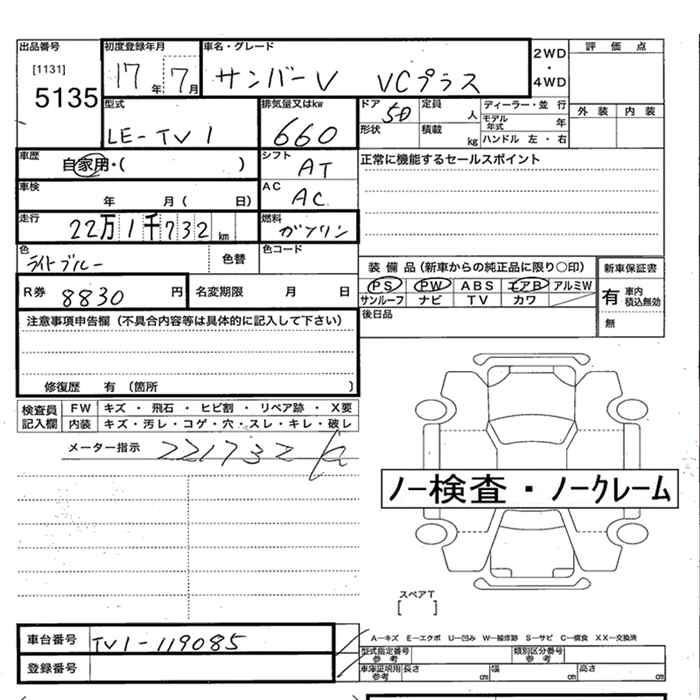 出品番号 初度登録年月 車名・グレード 評価点
[1131] 5135 17年 7月 サンバーV VCプラス 2WD・4WD
外装 内装
型式 排気量又はkw ドア 5D 定員 人 ディーラー・並行
LE-TV1 660 形状 積載 kg モデル年式 年
ハンドル 左・右
車歴 自家用・( ) シフト AT 正常に機能するセールスポイント
車検 年 月( 日) AC AC
走行 22万1千732km 燃料 ガソリン
色 ライトブルー 色替 色コード
装備品(新車からの純正品に限り○印) 新車保証書
R券 8830円 名変期限 月 日 PS PW ABS エアB アルミW 有 車内積込無効
サンルーフ ナビ TV カワ 無
注意事項申告欄(不具合内容等は具体的に記入して下さい) 後日品
修復歴 有(箇所 )
検査員記入欄 FW キズ・飛石・ヒビ割・リペア跡・X要
内装 キズ・汚レ・コゲ・穴・スレ・キレ・破レ
メーター指示 221732
ノー検査・ノークレーム
スペアT
[ ]
車台番号 TV1-119085 A―キズ E―エクボ U―凹み W―補修跡 S―サビ C―腐食 XX―交換済
型式指定番号 参考 類別区分番号 参考
登録番号 車庫証明用 参考 長さ cm 幅 cm 高さ cm